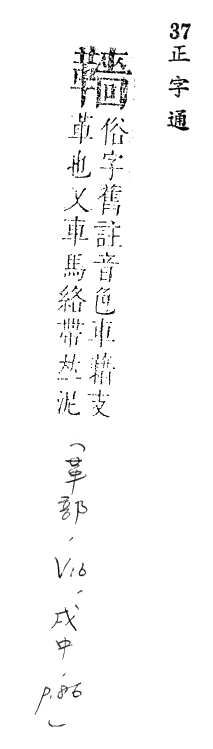 37 正字通
俗字舊註音色車籍交
革也又車馬絡帶𠀤泥
(革部, V.16, 戌中, p.86)